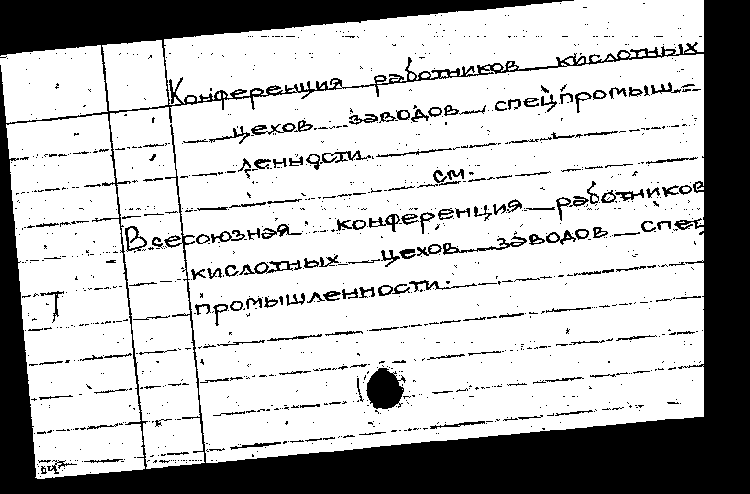 Конференция работников кислотных
цехов заводов спецпромыш-
ленности
см.
Всесоюзная конференция работников
кислотных цехов заводов спец
промышленности.
Т